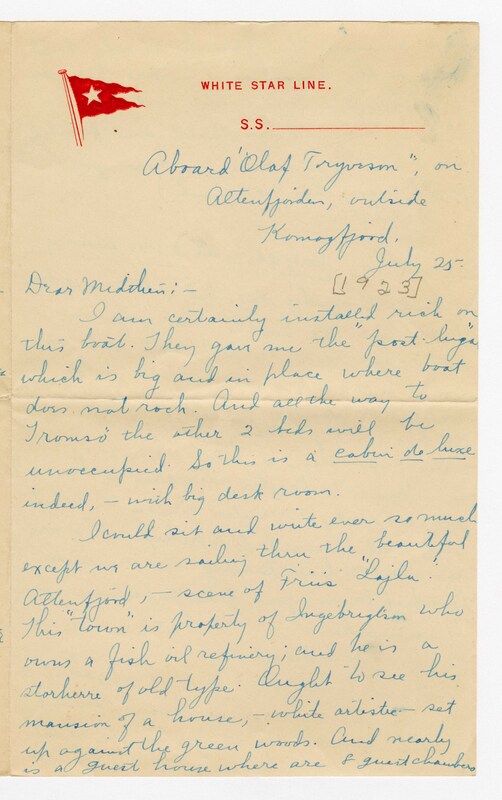 WHITE STAR LINE.
S.S.
Aboard "Olaf Trygvsson", on
Altenfjorden, outside
Komagfjord.
July 25.
[1923]
Dear Middchen:—
I am certainly installed rich on
this boat. They gave me the "post-lugar"
which is big and in place where boat
does not rock. And all the way to
Tromsö the other 2 beds will be
unoccupied. So this is a cabin de luxe
indeed, — with big desk room.
I could sit and write ever so much
except we are sailing thru the beautiful
Altenfjord, — scene of Friis "Lajla".
This "town" is property of Ingebrigtson who
owns a fish oil refinery; and he is a
storherre of old type. Ought to see his
mansion of a house, — white artistic — set
up against the green woods. And nearly
is a guest house where are 8 guest chambers